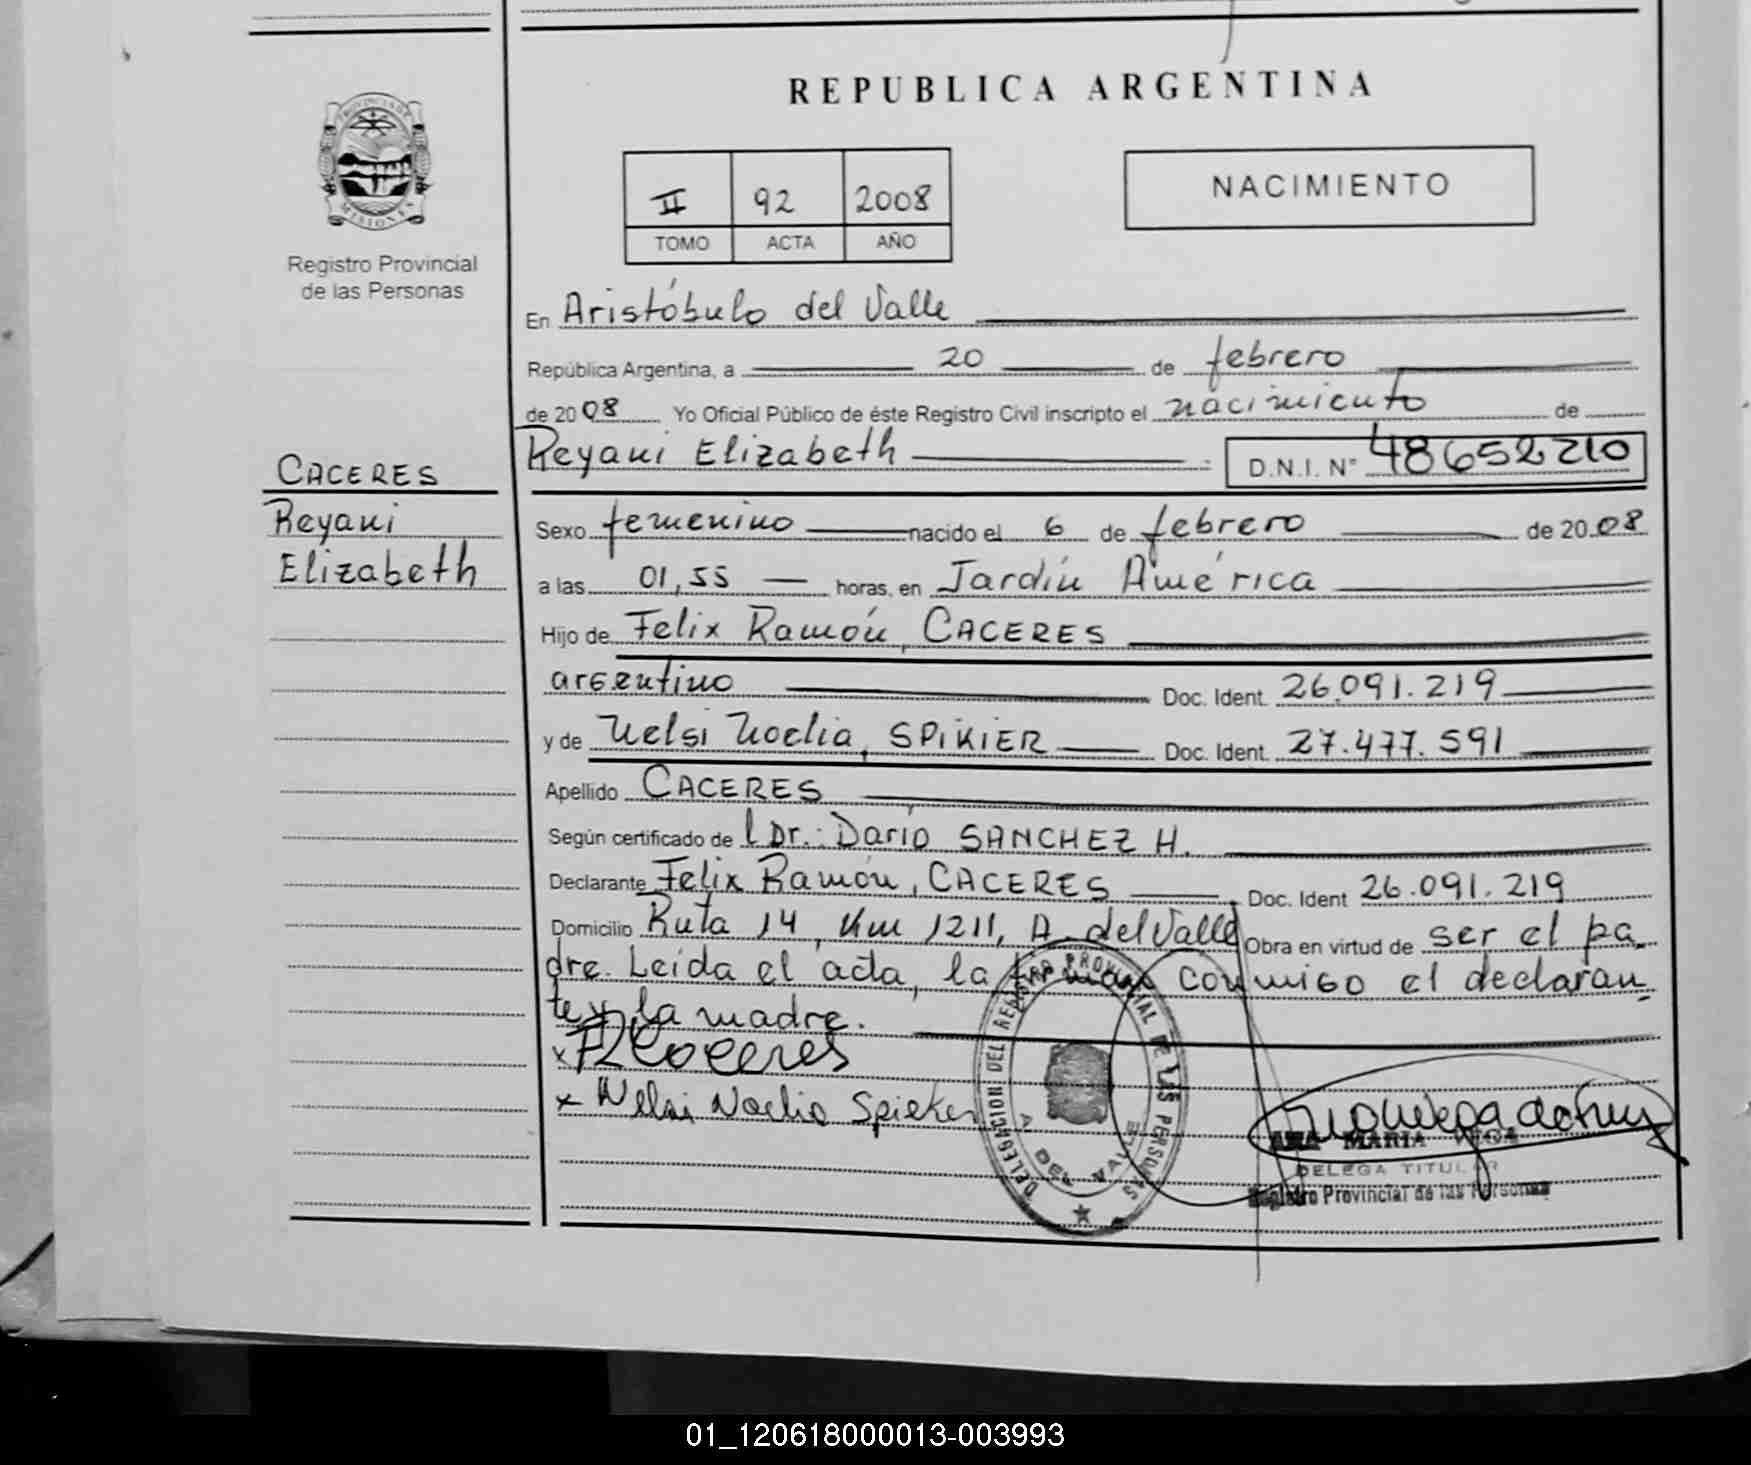 REPUBLICA ARGENTINA
PROVINCIA DE
MISIONES
Registro Provincial
de las Personas
II 92 2008
TOMO ACTA AÑO
NACIMIENTO
En Aristóbulo del Valle
República Argentina, a 20 de febrero
de 2008 Yo Oficial Público de éste Registro Civil inscripto el nacimiento de
Reyani Elizabeth D.N.I. N° 48652210
CACERES
Reyani
Elizabeth
Sexo femenino nacido el 6 de febrero de 2008
a las 01,55 horas, en Jardín América
Hijo de Felix Ramón, CACERES
argentino Doc. Ident. 26.091.219
y de Nelsi Noelia, SPIKIER Doc. Ident. 27.477.591
Apellido CACERES
Según certificado de l Dr.: Darío SANCHEZ H.
Declarante Felix Ramón, CACERES Doc. Ident 26.091.219
Domicilio Ruta 14, Km 1211, A. del Valle Obra en virtud de ser el pa-
dre. Leída el acta, la firman conmigo el declaran-
te y la madre.
x FR Caceres
x Nelsi Noelia Spieker
DELEGACION DEL REGISTRO PROVINCIAL DE LAS PERSONAS
A. DEL VALLE
ANA MARIA VEGA
DELEGA TITULAR
Registro Provincial de las Personas
01_120618000013-003993